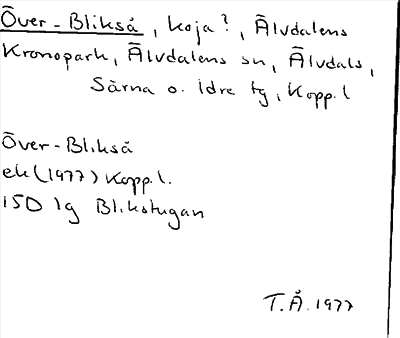 Över-Blikså, koja?, Älvdalens
Kronopark, Älvdalens sn, Älvdals,
Särna o. Idre tg, Kopp.l
Över-Blikså
ek (1977) Kopp.l.
15D 1g Blikstugan
T.Å. 1977